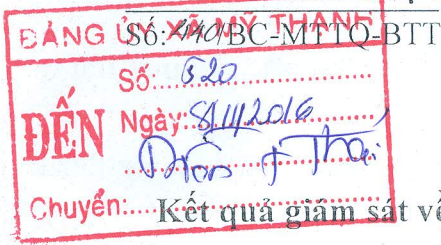 ĐẢNG ỦY XÃ MỸ THÀNH
Số: /BC-MTTQ-BTT
Số: 520
ĐẾN
Ngày: 8/11/2016
Chuyển:
Kết quả giám sát về